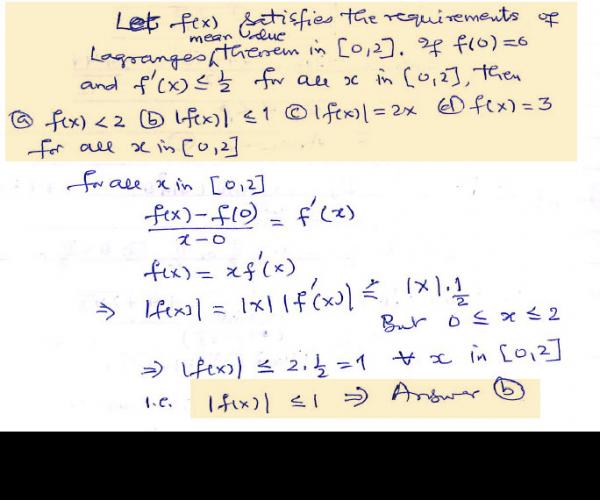 Let f(x) satisfies the requirements of
Lagranges mean value theorem in [0,2]. If f(0)=0
and f'(x) ≤ 1/2 for all x in [0,2], then
(a) f(x) < 2 (b) |f(x)| ≤ 1 (c) |f(x)| = 2x (d) f(x) = 3
for all x in [0,2]
for all x in [0,2]
(f(x) - f(0))/(x - 0) = f'(x)
f(x) = x f'(x)
⇒ |f(x)| = |x| |f'(x)| ≤ |x| . 1/2
But 0 ≤ x ≤ 2
⇒ |f(x)| ≤ 2 . 1/2 = 1 ∀ x in [0,2]
i.e. |f(x)| ≤ 1 ⇒ Answer (b)